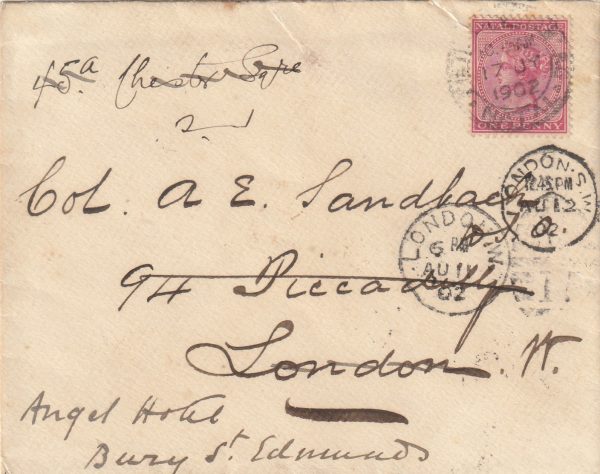 45a Chester Sqre
NATAL POSTAGE
17 JY
1902
ONE PENNY
Col. A E. Sandbach
LONDON.S.W
12.45 PM
AU 12
02
LONDON.W
6 PM
AU 11
02
94 Piccadilly
London. W.
Angel Hotel
Bury St. Edmunds